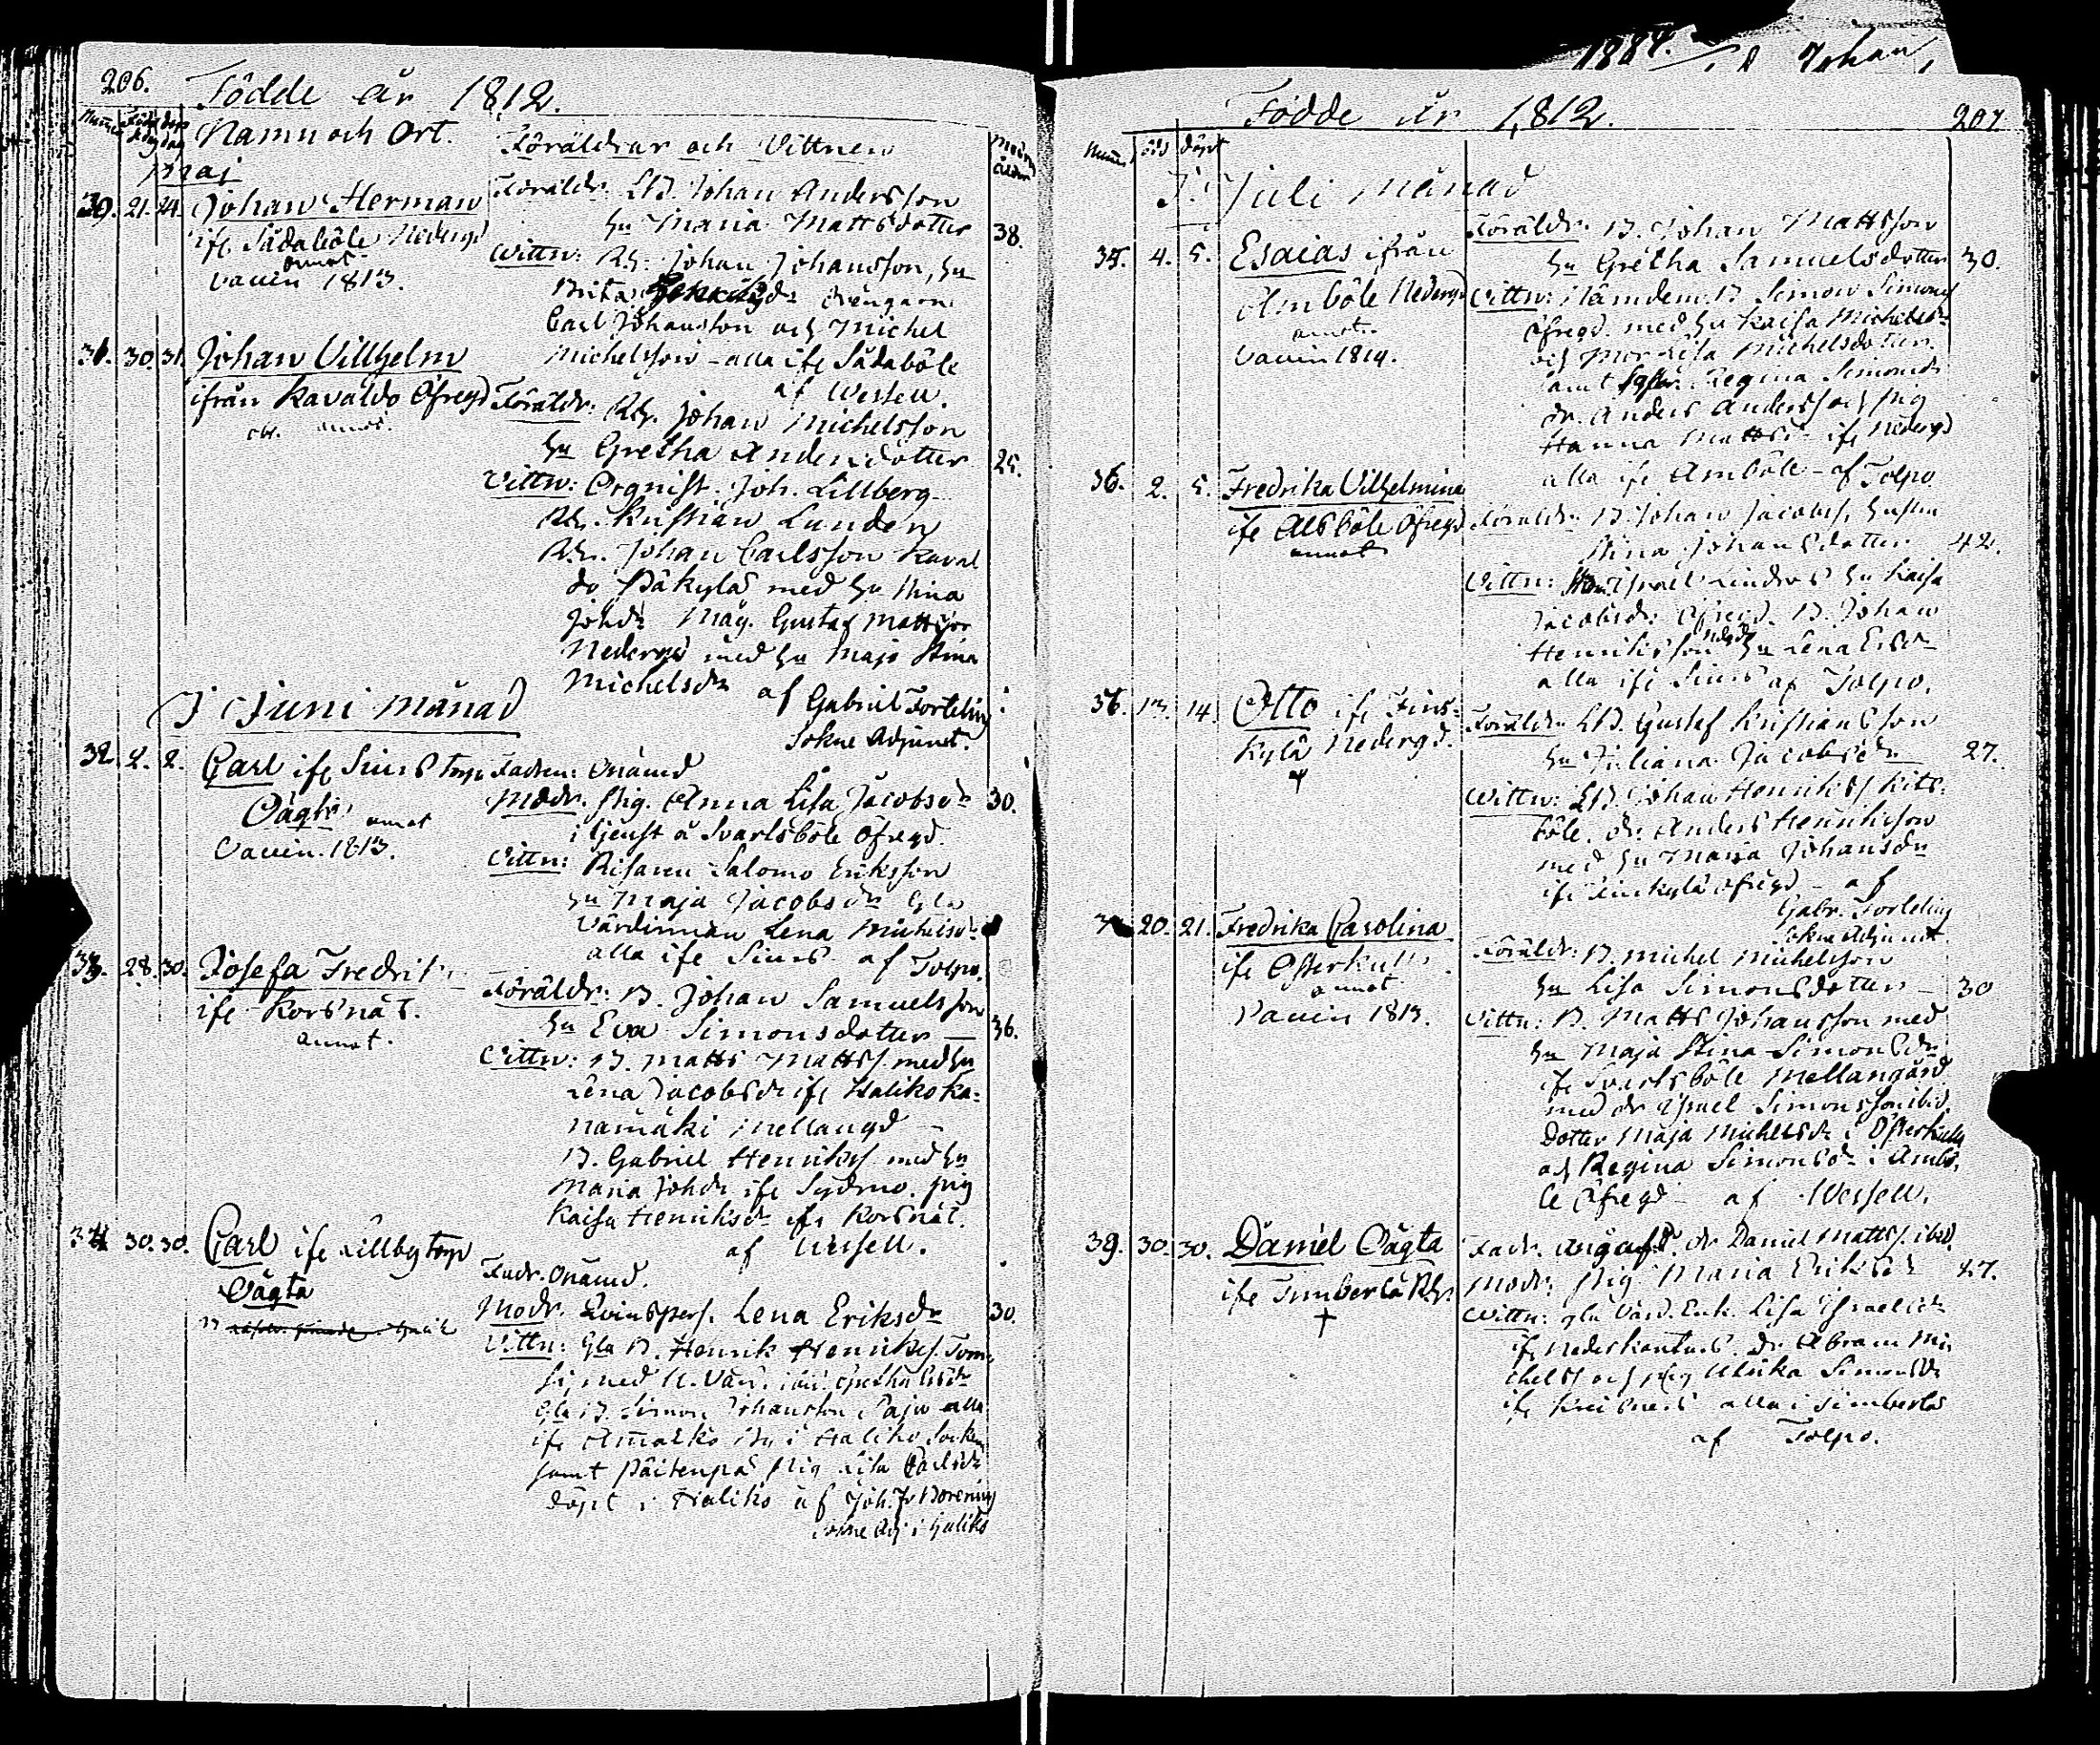 206. Födde år 1812.
Namn och Ort. Föräldrar och Vittnen
Maj
39. 21. 24. Johan Herman
ifr. Sådaböle Nedergd
annot
Vaccin 1813.
Föräldr. LB. Johan Andersson
hu Maria Mattsdotter 38.
Vittn: Rr. Johan Johansson, hu
Brita drängarn
Carl Johansson och Michel
Michelsson - alla ifr Sådaböle
af Wessell.
31. 30. 31. Johan Villhelm
ifrån Kavaldo Öfregd
Föräldr: Rr. Johan Michelsson
hu Gretha Andersdotter 25.
Vittn: Orgnist. Joh. Lillberg
Rr. Kristian Lunden
Rr. Johan Carlsson Kaval
do Päkylä med hu Stina
Johdr Måg. Gustaf Mattsson
Nedergd med hu Maja Stina
Michelsdr af Gabriel Forteling
Sokne Adjunct.
I Juni månad
32. 2. 2. Carl ifr Siuis torp
Oägta annot
Vaccin. 1813.
Fadren: Onämd
Modr. Pig. Anna Lisa Jacobsdr 30.
i tjenst å Svartsböle Öfregd.
Vittn: Risaren Salomo Eriksson
hu Maja Jacobsdr Gla
Värdinnan Lena Michelsdr
alla ifr Siuis af Tolpo.
33. 28. 30. Josefa Fredrika
ifr Korsnäs.
annot.
Föräldr: B. Johan Samuelsson
hu Eva Simonsdotter 36.
Vittn: B. Matts Mattss. med hu
Lena Jacobsdr ifr Haliko ka=
namäki Mellangd
B. Gabriel Henrikss med hu
Maria Johdr ifr Sydmo. Pig
Kaisa Henriksdr ifr Korsnäs.
af Wessell.
34 30. 30. Carl ifr Lillby torp
Oägta
Fadr. Onämd.
Modr. Qvinspers. Lena Eriksdr 30.
Vittn: Gla B. Henrik Henrikss.
med
Gla B. Simon Johansson Paju alla
ifr i Haliko Sockn
samt Pig Lisa Carlsdr
döpt i Haliko af Joh. Fr Borening
Sokne Adj i Haliko
Födde År 1812. 207
Num. född döpt
I Juli Månad
35. 4. 5. Esaias ifrån
Ämböle Nedergd
annot.
Vaccin 1814.
Föräldr. B. Johan Mattsson
hu Gretha Samuelsdotter 30.
Vittn: Nämdem. B Simon Simons
Öfregd. med hu Kaisa Michelsdr
och Mor Lisa Michelsdotter
samt Regina Simonsdr
dr. Anders Anderss och Pig
Hanna Mattsdr ifr Nedergd
alla ifr Ämböle - af Tolpo
36. 2. 5. Fredrika Vilhelmina
ifr Alsböle Öfregd
annot
Föräldr. B. Johan Jacobss, hustru
Stina Johansdotter 42.
Vittn: Israel Linders hu Kaisa
Jacobsdr Öfregd. B. Johan
Henriksson hu Lena Ersdr
alla ifr Siuis af Tolpo.
36. 13. 14. Otto ifr Fins=
kylä Nedergd.
Föräldr. LB. Gustaf Kristiansson
hu Juliana Jacobsdr 27.
Vittn: LB. Johan Henrikss Kits=
böle, dr. Anders Henriksson
med hu Maria Johansdr
ifr Finskylä Öfregd - af
Gabr. Forteling
Sokne Adjunct.
20. 21. Fredrika Carolina
ifr Österkulla
annot
Vaccin 1813.
Föräldr: B. Michel Michelsson
hu Lisa Simonsdotter - 30
Vittn: B. Matts Johansson med
hu Maja Stina Simonsdr
ifr Svartsböle Mellangård
med dr Israel Simonsson ibid.
Dotter Maja Michelsdr i Österkulla
och Regina Simonsdr i Ämbö
le Öfregd - af Wessell.
39. 30. 30. Daniel Oägta
ifr Timberlä Rr.
†
Fadr. Angifd. dr Daniel Mattss. ibd.
Modr: Pig Maria Eriksdr 27.
Vittn: gla Värd. Enk. Lisa Israelsdr
ifr dr Abram Mi
chelss och Pig Ulrika Simonsdr
ifr alla i Timberlä
af Tolpo.